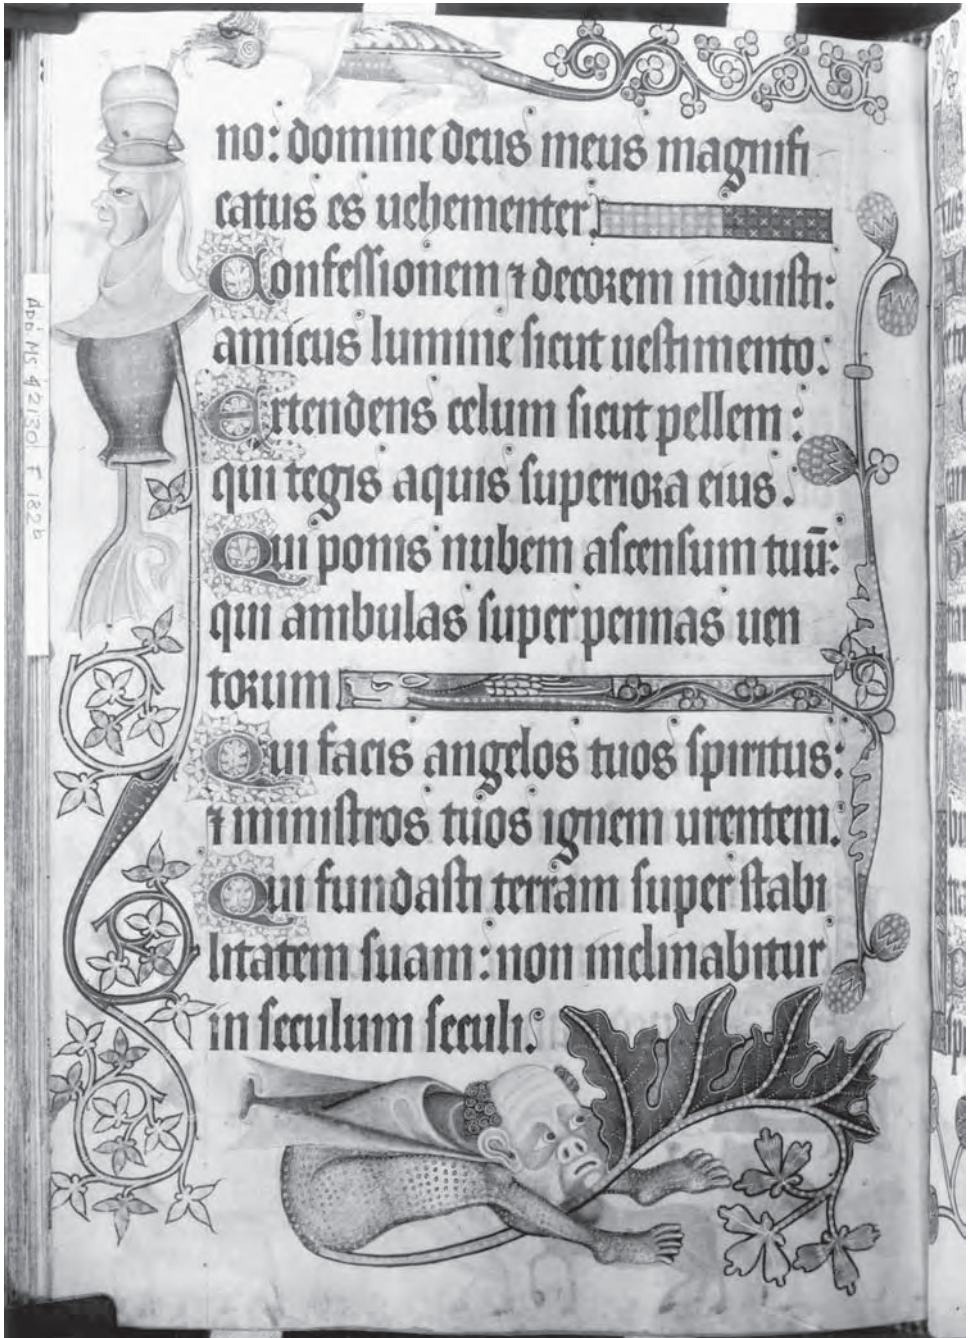 no: domine deus meus magnifi
catus es uehementer.
Confessionem ⁊ decorem induisti:
amictus lumine sicut uestimento.
Extendens celum sicut pellem:
qui tegis aquis superiora eius.
Qui ponis nubem ascensum tuū:
qui ambulas super pennas uen
torum
Qui facis angelos tuos spiritus:
⁊ ministros tuos ignem urentem.
Qui fundasti terram super stabi
litatem suam: non inclinabitur
in seculum seculi.
Add. Ms 42130 F 182b